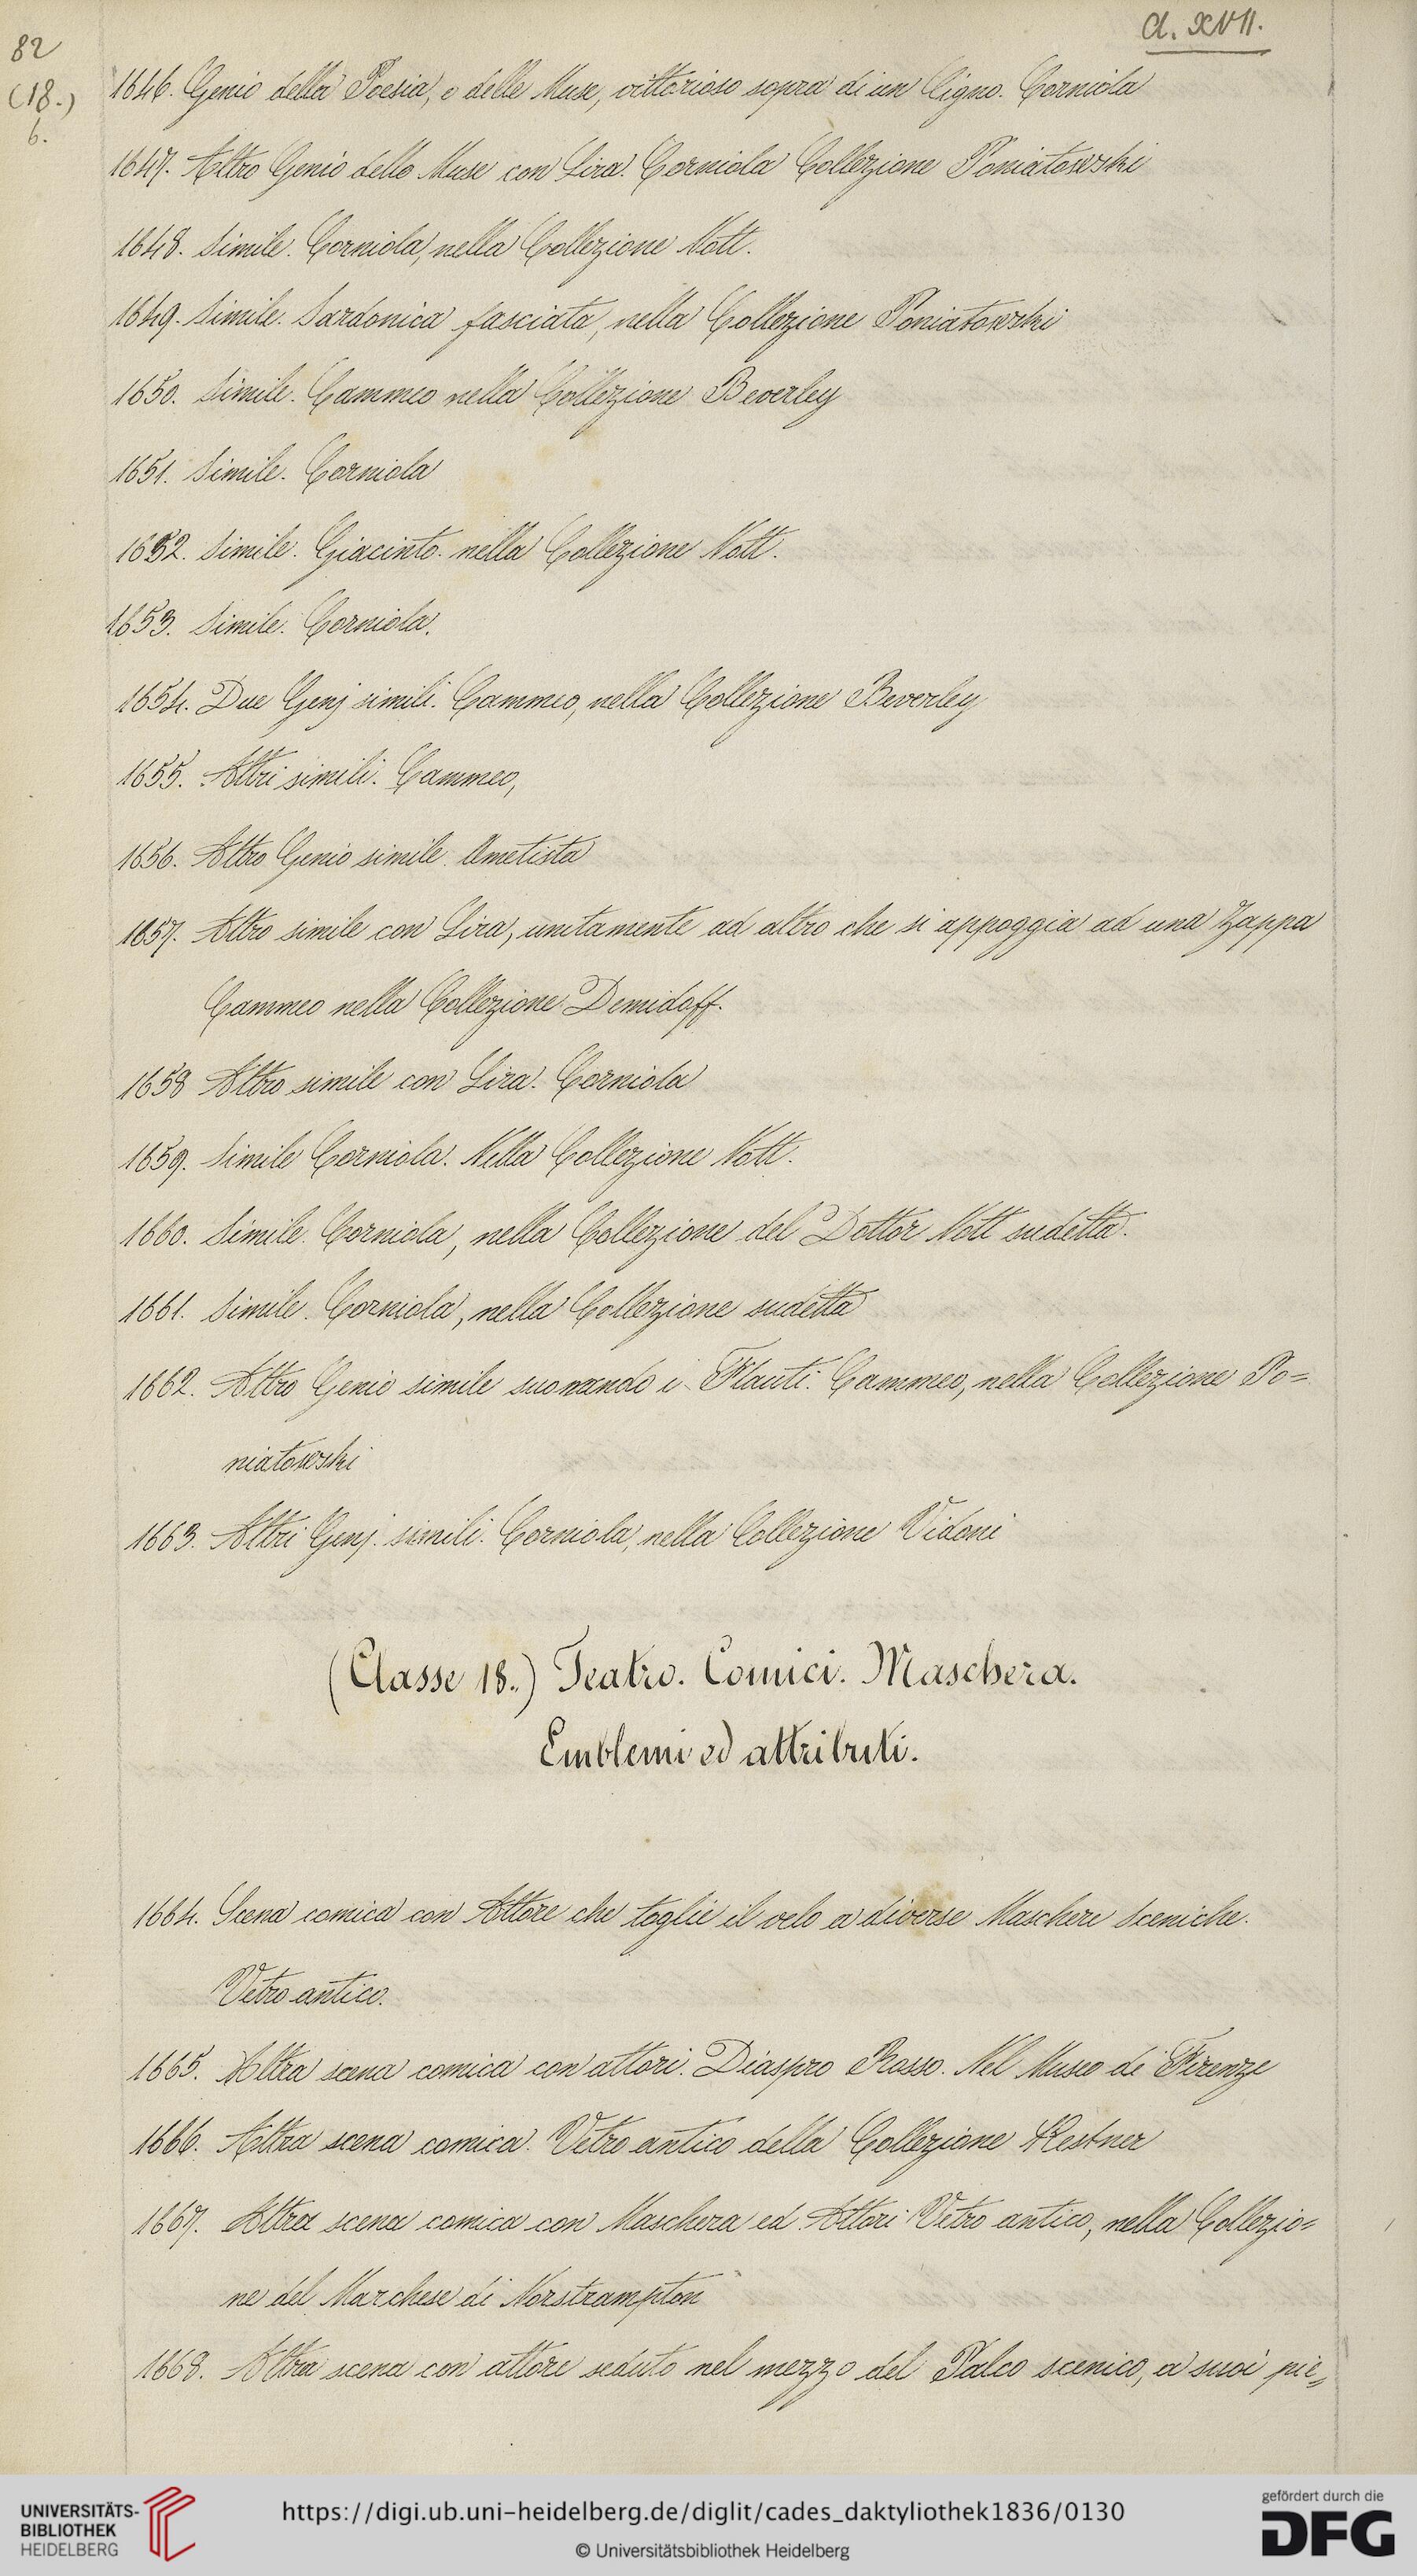 Cl. XVII.
82
(18.)
6.
1646. Genio della Poesia, e delle Muse, vittorioso sopra di un Cigno. Corniola
1647. Altro Genio delle Muse con Lira. Corniola Collezione Poniatowski
1648. Simile. Corniola, nella Collezione Nott.
1649. Simile. Sardonica fasciata, nella Collezione Poniatowski
1650. Simile. Cammeo nella Collezione Beverley
1651. Simile. Corniola
1652. Simile. Giacinto. nella Collezione Nott.
1653. Simile. Corniola.
1654. Due Genj simili. Cammeo, nella Collezione Beverley
1655. Altri simili. Cammeo,
1656. Altro Genio simile. Ametista
1657. Altro simile con Lira, unitamente ad altro che si appoggia ad una Zappa
Cammeo nella Collezione Demidoff.
1658 Altro simile con Lira. Corniola
1659. Simile Corniola. Nella Collezione Nott.
1660. Simile. Corniola, nella Collezione del Dottor Nott sudetta.
1661. Simile. Corniola, nella Collezione sudetta
1662. Altro Genio simile suonando i Flauti. Cammeo, nella Collezione Po=
niatowski
1663. Altri Genj. simili. Corniola, nella Collezione Vidoni
(Classe 18.) Teatro. Comici. Maschera.
Emblemi ed attributi.
1664. Scena comica con Attore che toglie il velo a diverse Maschere Sceniche.
Vetro antico.
1665. Altra scena comica con attori. Diaspro Rosso. Nel Museo di Firenze
1666. Altra scena comica. Vetro antico della Collezione Kestner
1667. Altra scena comica con Maschera ed Attori Vetro antico, nella Collezio=
ne del Marchese di Norstrampton
1668. Altra scena con attore seduto nel mezzo del Palco scenico, a suoi pie=
UNIVERSITÄTS-
BIBLIOTHEK
HEIDELBERG
https://digi.ub.uni-heidelberg.de/diglit/cades_daktyliothek1836/0130
© Universitätsbibliothek Heidelberg
gefördert durch die
DFG